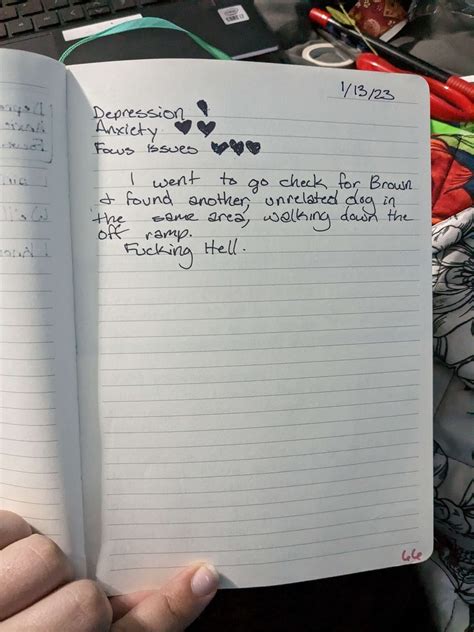 1/13/23
Depression
Anxiety ♥♥
Focus Issues ♥♥♥
I went to go check for Brown
& found another, unrelated dog in
the same area, walking down the
off ramp.
Fucking Hell.
66